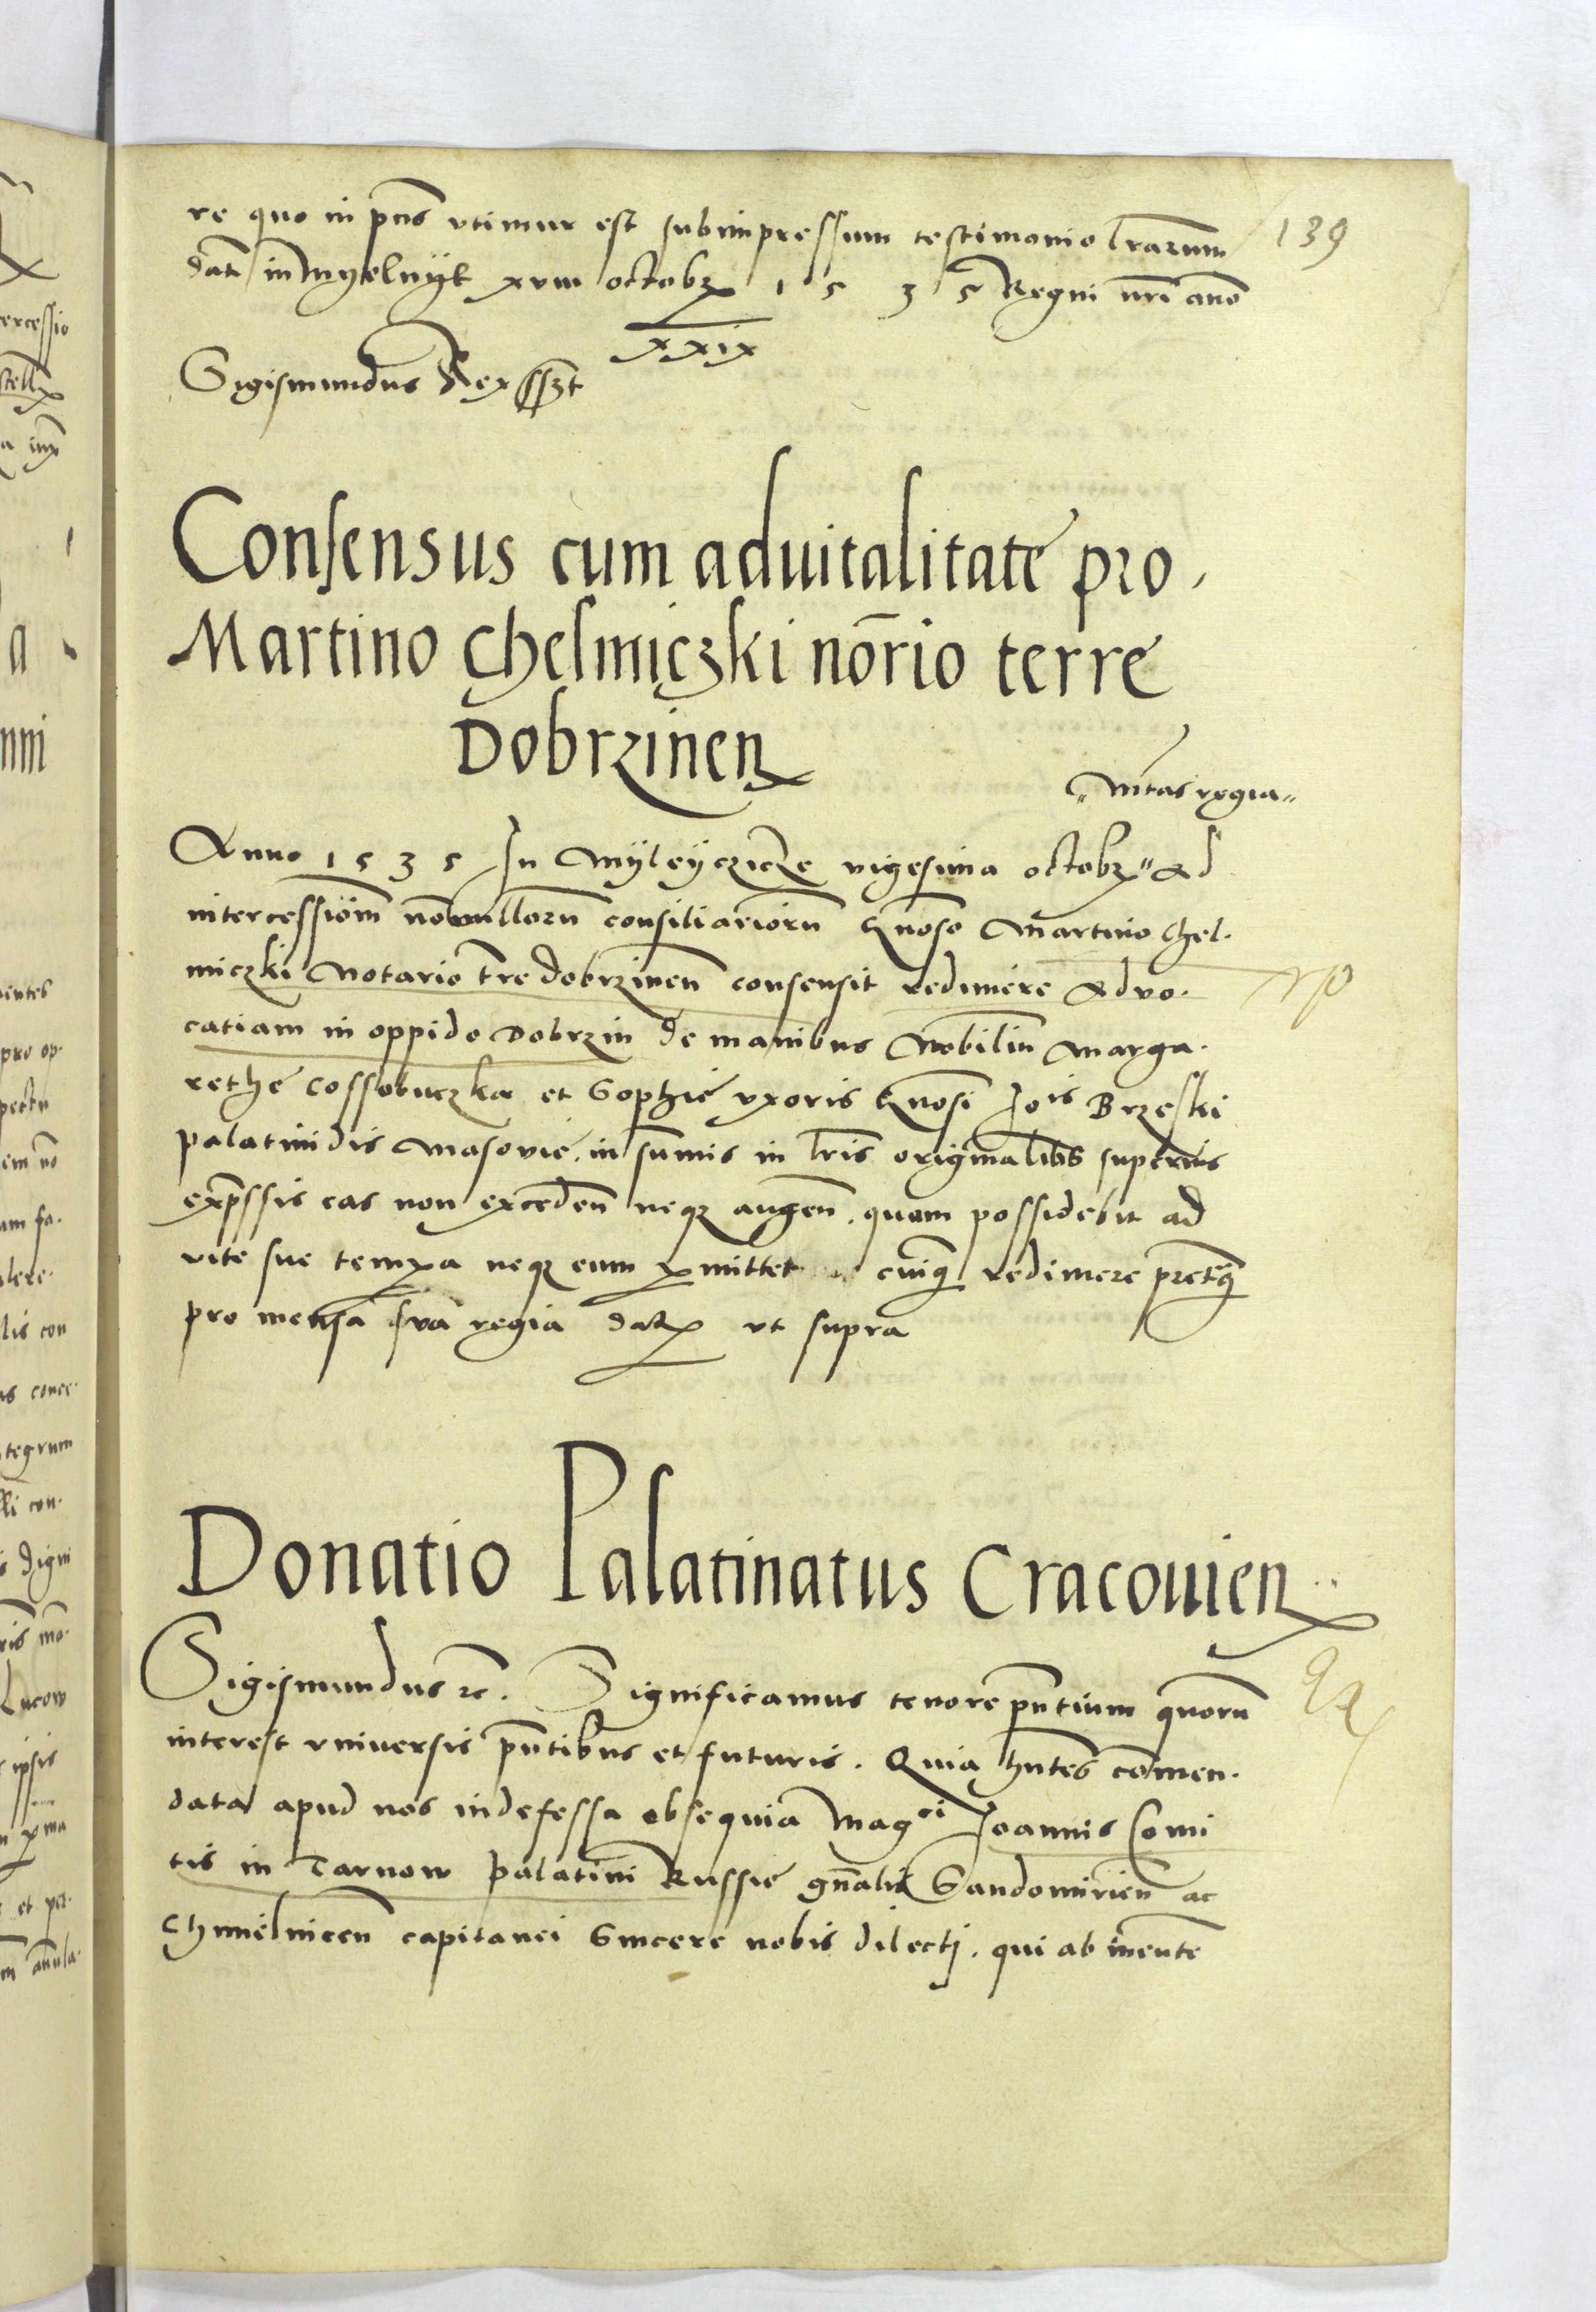 re quo in pñs vtimur est subimpressum testimonio lrarum
139
dat in Myelnyk xviii octobr 1535 Regni nri año
xxix
Sigismundus Rex sszt
Consensus cum aduitalitate pro
Martino Chelmiczki norio terre
Dobrzinen
Mtas regia
Anno 1535 In Myleyczicze vigesima octobr Ad
intercessiom nonnullorum consiliariorum Gnoso Martino Chel
miczki Notario tre dobrzinen consensit redimere Advo
catiam in oppido Dobrzin de manibus Nobilium Marga
rethe Cossobuczka et Sophie vxoris Gnosi Jois Brzeski
palatinidis Masovie in summis in lris originalibus superius
expssis eas non exceden neqz augen. quam possidebit ad
vite sue tempora neqz eum pmittet cuiq redimere pretq
pro mensa sua regia dat ut supra
Donatio Palatinatus Cracouien
Sigismundus rc. Significamus tenore pntium quorum
interest vniuersis pntibus et futuris. Quia hntes commen
data apud nos indefessa obsequia Magci Joannis Comi
tis in Tarnow palatini Russie gnalis Sandomirien ac
Chmielnicen capitanei Sincere nobis dilecti. qui ab ineunte